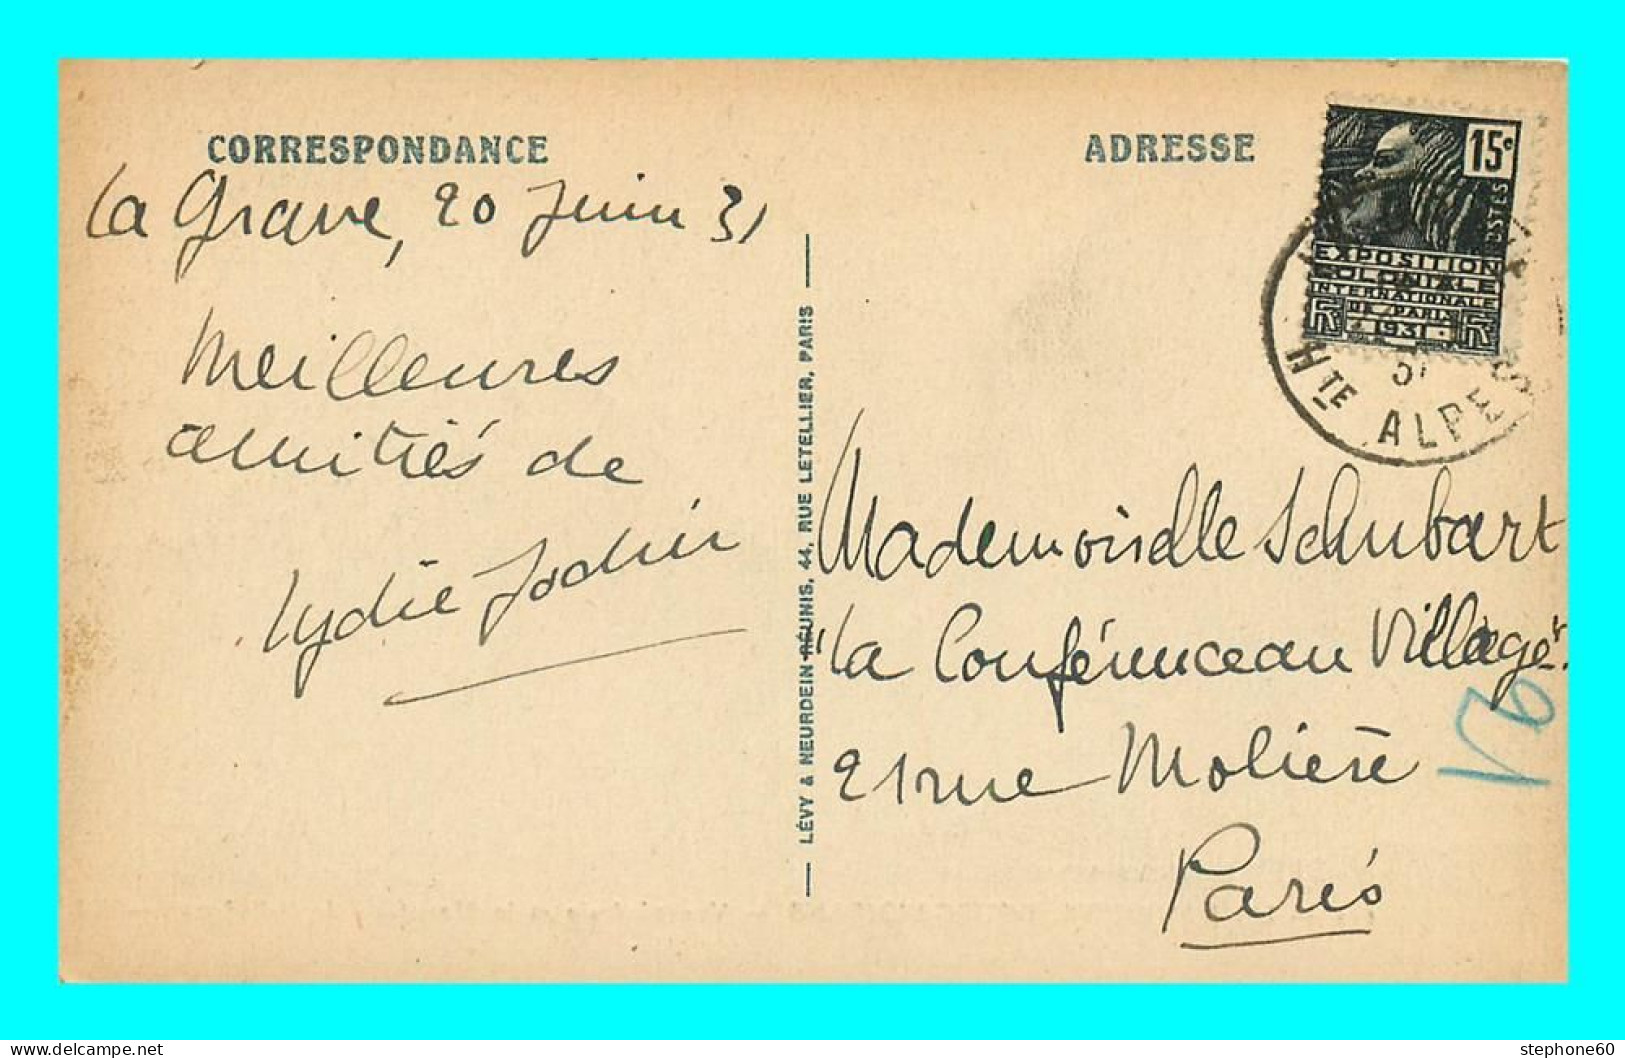 CORRESPONDANCE
La Grave, 20 Juin 31
Meilleures
amitiés de
Lydie
LÉVY & NEURDEIN RÉUNIS, 44, RUE LETELLIER, PARIS
ADRESSE
15c
POSTES
EXPOSITION
COLONIALE
INTERNATIONALE
DE PARIS
1931
RF RF
Hte ALPES
Mademoiselle Schubart
"La Conférence au Village"
21 rue Molière
Paris
stephone60